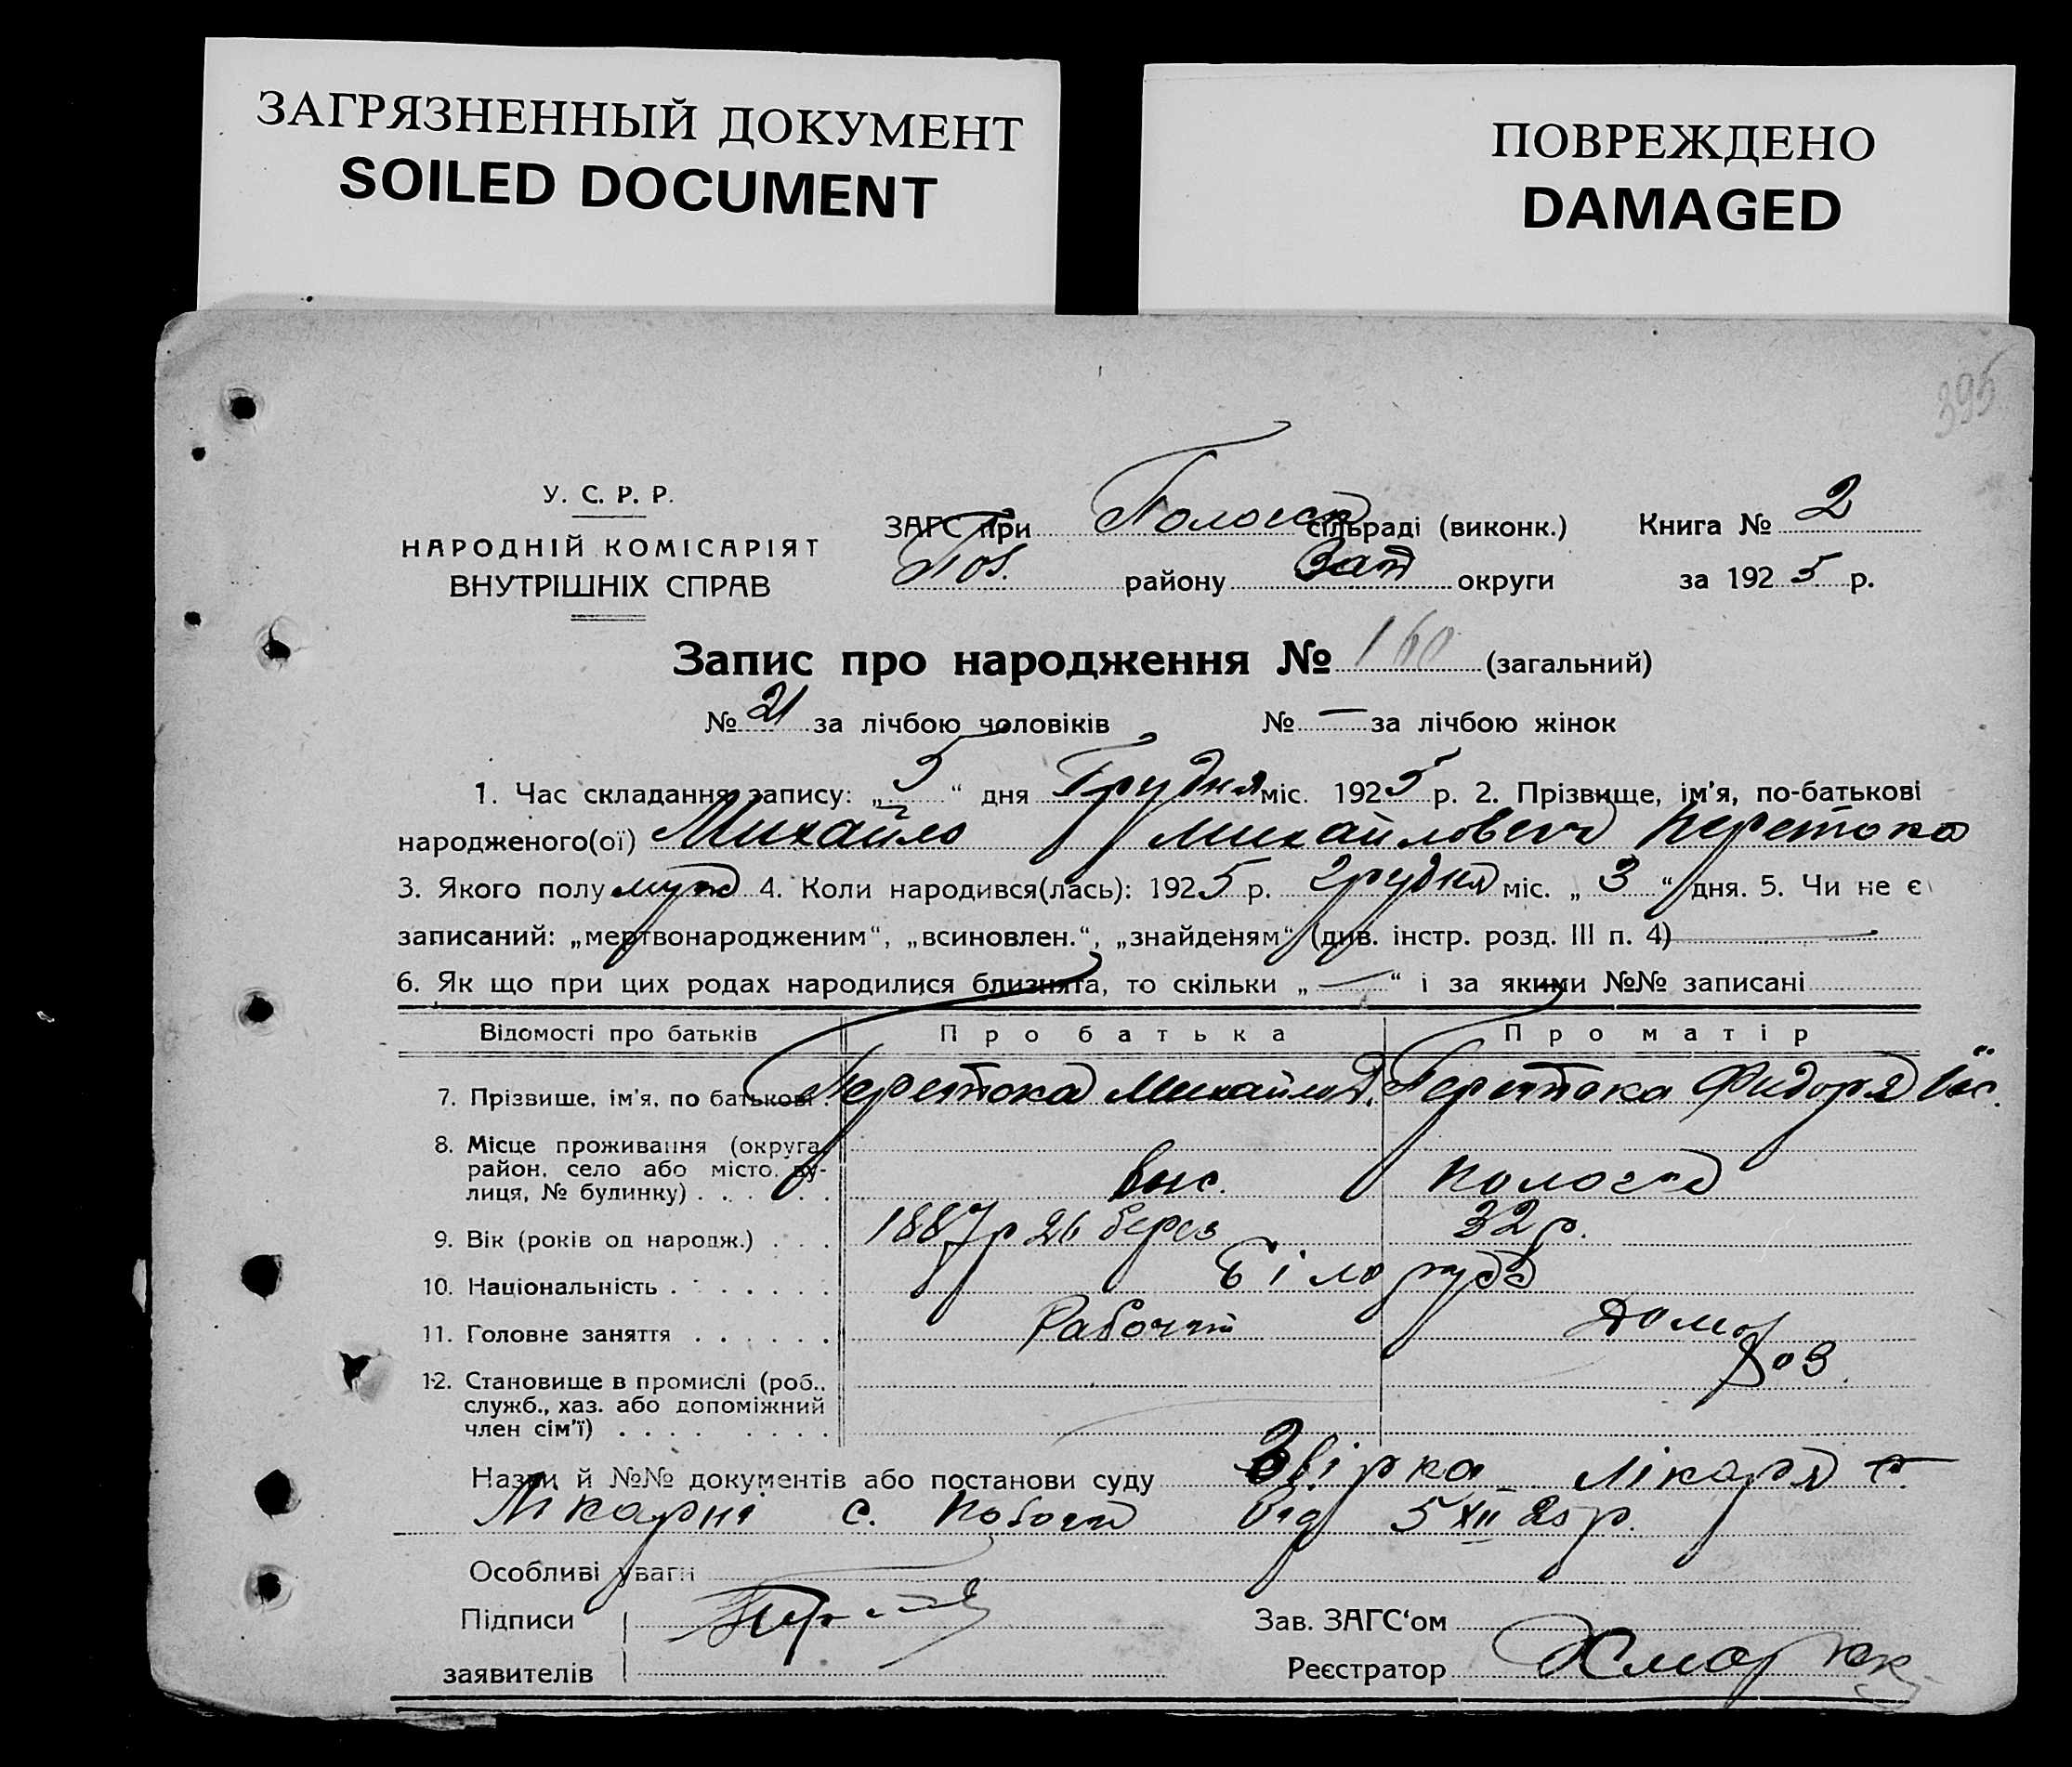 ЗАГРЯЗНЕННЫЙ ДОКУМЕНТ
SOILED DOCUMENT
ПОВРЕЖДЕНО
DAMAGED
395
У. С. Р. Р.
НАРОДНІЙ КОМІСАРІЯТ
ВНУТРІШНІХ СПРАВ
ЗАГС при сільраді (виконк.) Книга № 2
району Зап округи за 1925 р.
Запис про народження № 160 (загальний)
№ 21 за лічбою чоловіків № — за лічбою жінок
1. Час складання запису: „5“ дня Грудня міс. 1925 р. 2. Прізвище, ім'я, по-батькові
народженого(ої) Михайло Михайлович Перетока
3. Якого полу муж 4. Коли народився(лась): 1925 р. Грудня міс. „3“ дня. 5. Чи не є
записаний: „мертвонародженим“, „всиновлен.“, „знайденям“ (див. інстр. розд. III п. 4) —
6. Як що при цих родах народилися близнята, то скільки „—“ і за якими №№ записані
Відомості про батьків Про батька Про матір
7. Прізвише, ім'я, по батькові . Перетока Михайло Перетока
8. Місце проживання (округа,
район, село або місто, ву-
лиця, № будинку) . . . . . . Пологи
9. Вік (років од народж.) . . . 1887 р 26 берез 32 р.
10. Національність . . . . . . . Білорусь
11. Головне заняття . . . . . . Рабочий Дом.
хоз.
12. Становище в промислі (роб.,
служб., хаз. або допоміжний
член сім'ї) . . . . . . . . .
Назви й №№ документів або постанови суду Звірка лікаря
Лікарні с. від 5 XII 25 р.
Особливі уваги
Підписи Зав. ЗАГС'ом
заявителів Реєстратор